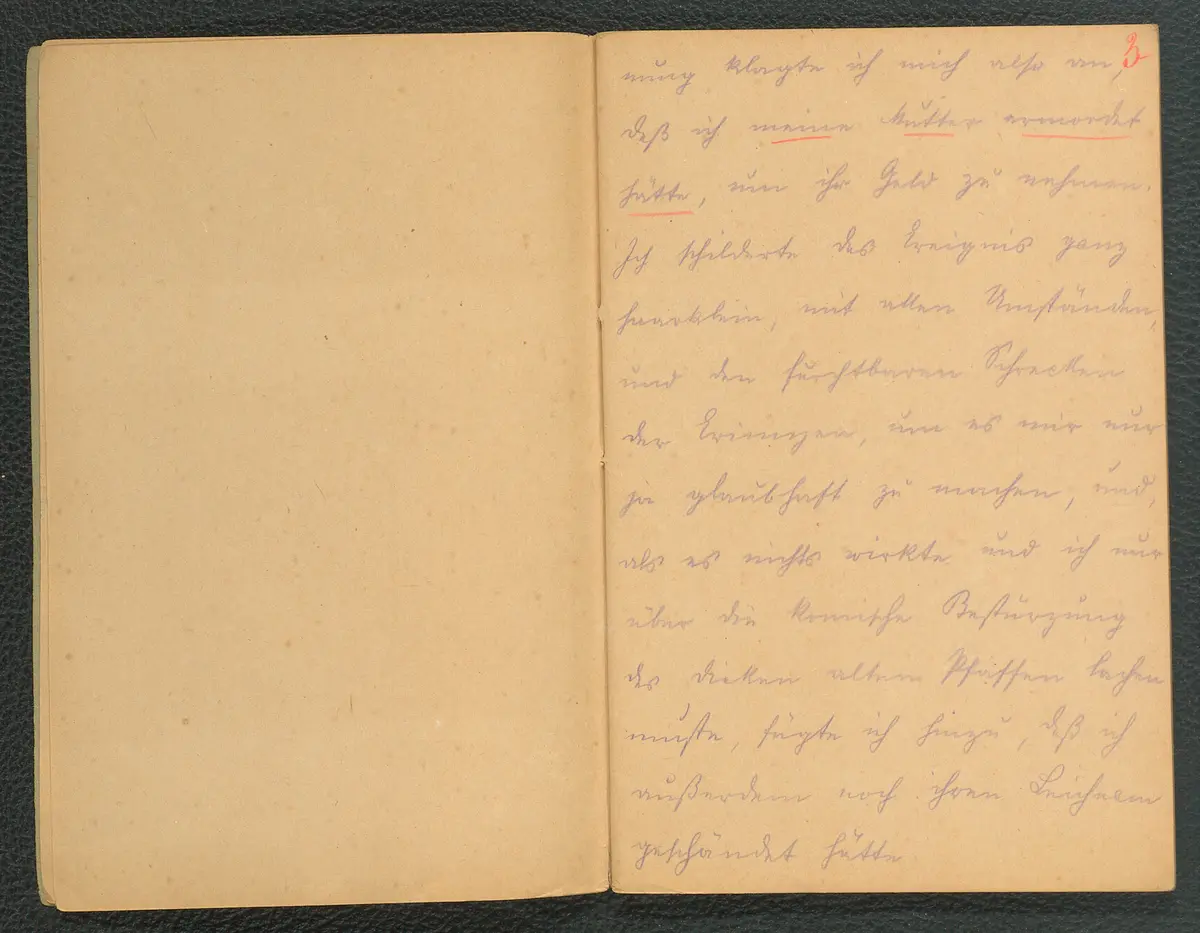 3
nung klagte ich mich also an,
daß ich meine Mutter ermordet
hätte, um ihr Geld zu nehmen.
Ich schilderte das Ereignis ganz
haarklein, mit allen Umständen,
und den furchtbaren Schrecken
der Erinnyen, um es mir nur
ja glaubhaft zu machen, und,
als es nichts wirkte und ich nur
über die komische Bestürzung
des dicken alten Pfaffen lachen
mußte, fügte ich hinzu, daß ich
außerdem noch ihren Leichnam
geschändet hätte.